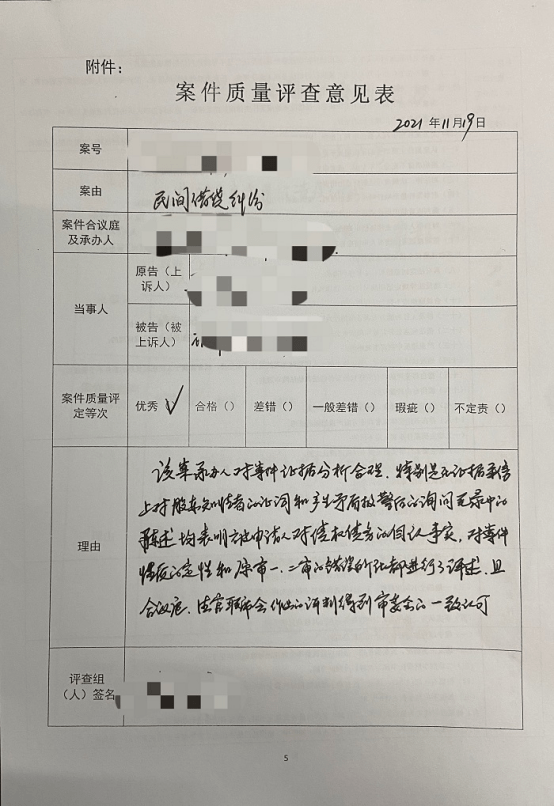 附件：
案件质量评查意见表
2021 年 11 月 19 日
案号
案由
民间借贷纠纷
案件合议庭
及承办人
当事人
原告（上
诉人）
被告（被
上诉人）
案件质量评
定等次
优秀（√） 合格（） 差错（） 一般差错（） 瑕疵（） 不定责（）
理由
该案承办人对事件证据分析合理，特别是在证据采信
上对股东知情者的证词和产生矛盾报警后的询问笔录中的
陈述均表明被申请人对债权债务的自认事实，对事件
性质的定性和原审一、二审的错误所在都进行了评述，且
合议庭、法官联席会作出的评判得到审委会的一致认可
评查组
（人）签名
5